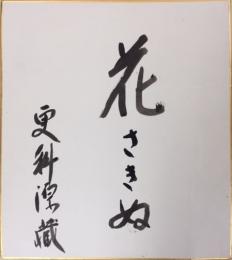 花さきぬ
更科源藏